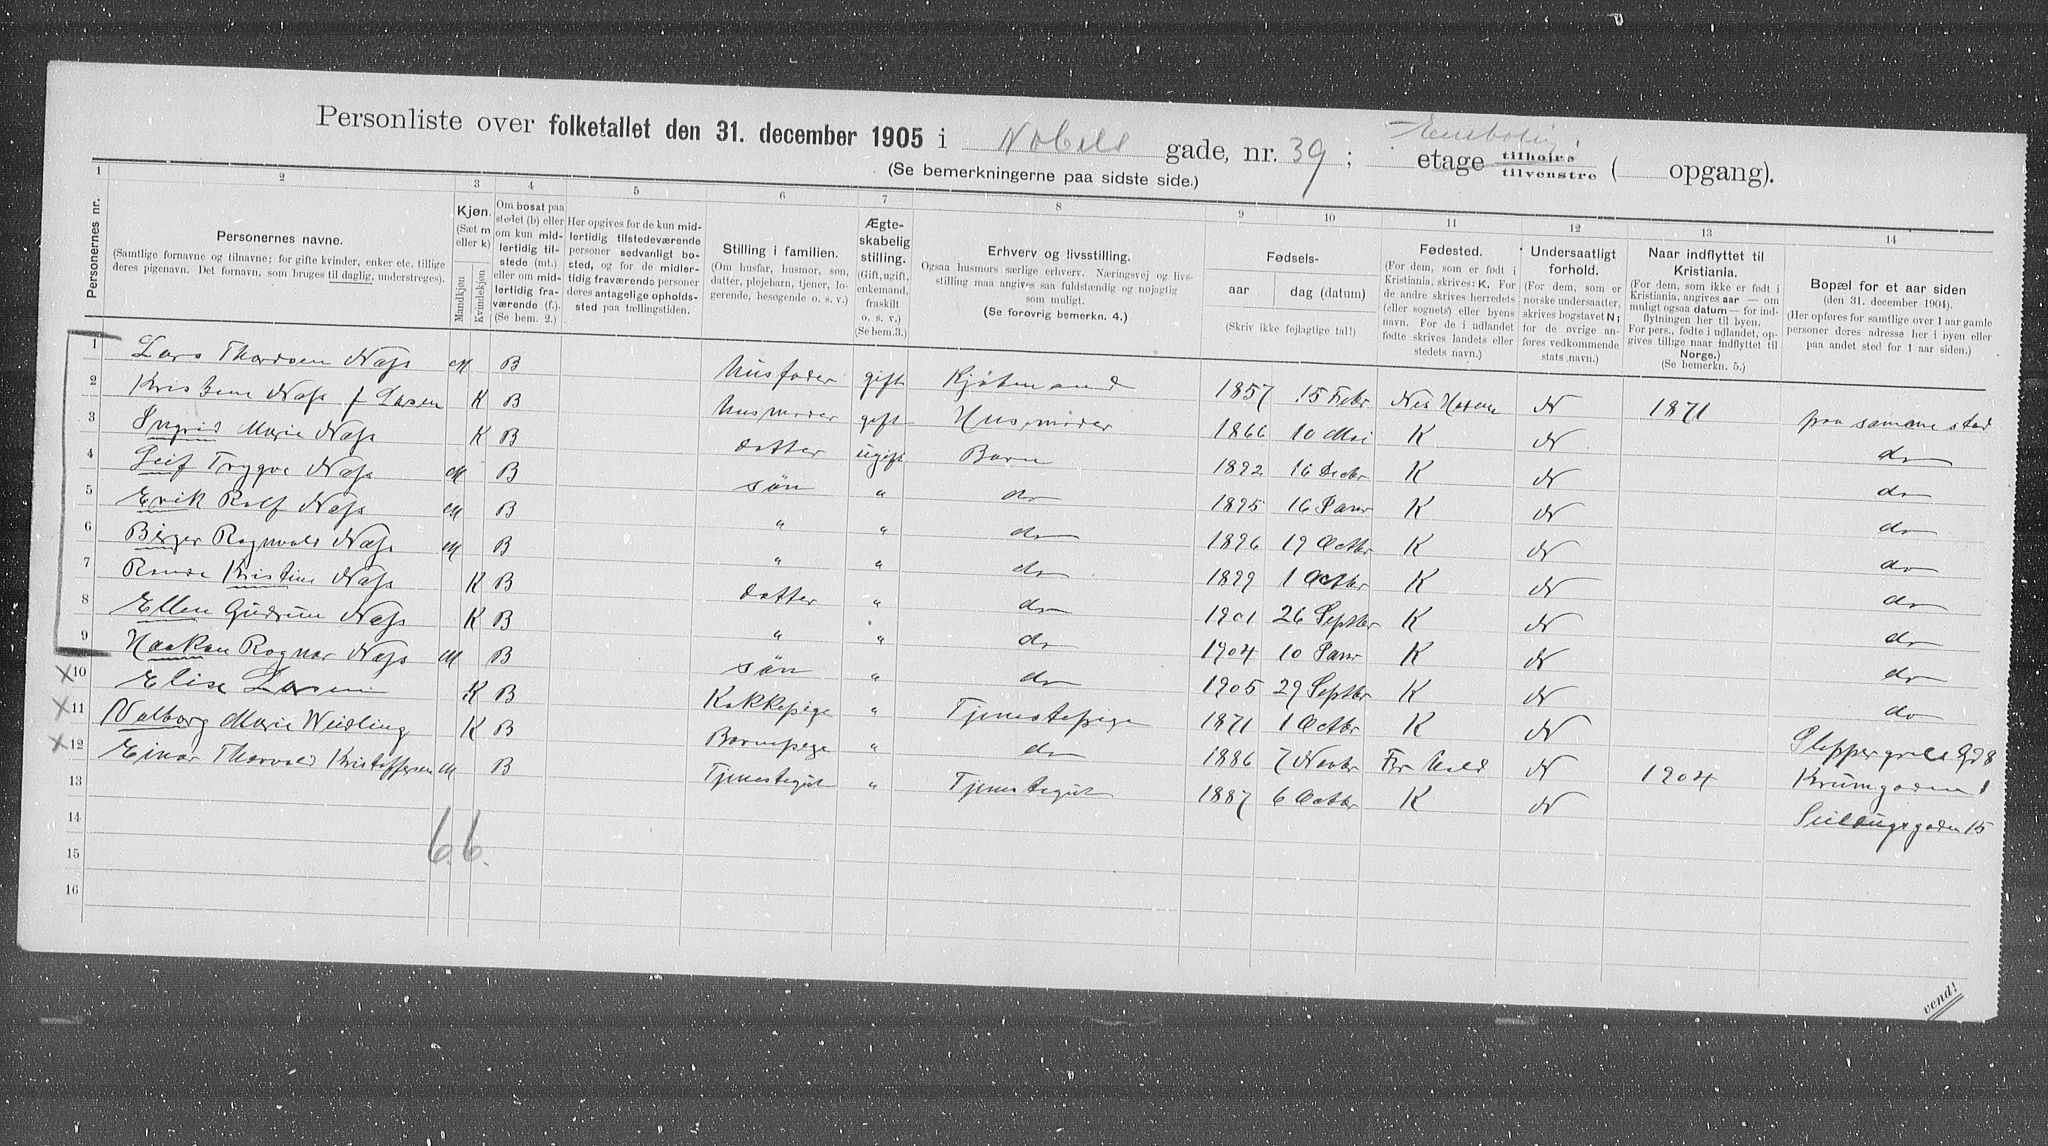 Personliste over folketallet den 31. december 1905 i Nobels gade, nr. 39; Enebolig etage tilhøire tilvenstre ( opgang).
(Se bemerkningerne paa sidste side.)
1 2 3 4 5 6 7 8 9 10 11 12 13 14
Personernes nr.
Personernes navne.
(Samtlige fornavne og tilnavne; for gifte kvinder, enker etc. tillige
deres pigenavn. Det fornavn, som bruges til daglig, understreges).
Kjøn.
(Sæt m
eller k)
Mandkjøn
Kvindekjøn
Om bosat paa
stedet (b) eller
om kun mid-
lertidig til-
stede (mt.)
eller om mid-
lertidig fra-
værende (f.).
(Se bem. 2.)
Her opgives for de kun mid-
lertidig tilstedeværende
personer sedvanligt bo-
sted, og for de midler-
tidig fraværende personer
deres antagelige opholds-
sted paa tællingstiden.
Stilling i familien.
(Om husfar, husmor, søn,
datter, plejebarn, tjener, lo-
gerende, besøgende o. s. v.)
Ægte-
skabelig
stilling.
(Gift, ugift,
enkemand,
fraskilt
o. s. v.)
(Se bem. 3.)
Erhverv og livsstilling.
Ogsaa husmors særlige erhverv. Næringsvej og livs-
stilling maa angives saa fuldstændig og nøjagtig
som muligt.
(Se forøvrig bemerkn. 4.)
Fødsels-
aar dag (datum)
(Skriv ikke fejlagtige tal!)
Fødested.
(For dem, som er født i
Kristiania, skrives: K. For
de andre skrives herredets
(eller sognets) eller byens
navn. For de i udlandet
fødte skrives landets eller
stedets navn.)
Undersaatligt
forhold.
(For dem, som er
norske undersaatter,
skrives bogstavet N;
for de øvrige an-
føres vedkommende
stats navn.)
Naar indflyttet til
Kristiania.
(For dem, som ikke er født i
Kristiania, angives aar — om
muligt ogsaa datum — for ind-
flytningen her til byen.
For pers., fødte i udlandet, op-
gives tillige naar indflyttet til
Norge.)
(Se bemerkn. 5.)
Bopæl for et aar siden
(den 31. december 1904).
(Her opføres for samtlige over 1 aar gamle
personer deres adresse her i byen eller
paa andet sted for 1 aar siden.)
1 Lars Thordsen Næss M B husfader gift Kjøbmand 1857 15 Febr Nes Hedem N 1871 paa samme sted
2 Kristine Næss f Larsen K B husmoder gift Husmoder 1866 10 Mai K N do
3 Ingrid Marie Næss K B datter ugift Barn 1892 16 Decbr K N do
4 Leif Trygve Næss M B søn " do 1895 16 Janr K N do
5 Erik Rolf Næss M B " " do 1896 19 Octbr K N do
6 Birger Ragnvald Næss M B " " do 1899 1 Octbr K N do
7 Kristine Næss K B datter " do 1901 26 Septbr K N do
8 Ellen Gudrun Næss K B " " do 1904 10 Janr K N do
9 Haakon Ragnar Næss M B søn " do 1905 29 Septbr K N do
x 10 Elise Larsen K B Kokkepige " Tjenestepige 1871 1 Octbr K N
x 11 Valborg Marie Weidling K B Barnepige " do 1886 7 Novbr Fr Hald N 1904 Krumgaden 1
x 12 Einar Thorvald Kristoffersen M B Tjenestegut " Tjenestegut 1887 6 Octbr K N
13
14
15
16
6 6.
vend!